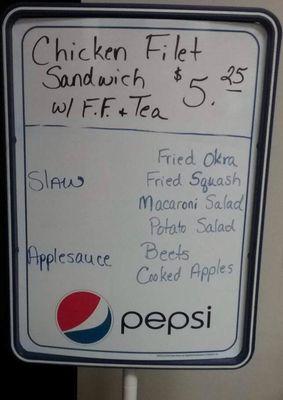 Chicken Filet
Sandwich $5.25
w/ F.F. + Tea
Fried Okra
Slaw Fried Squash
Macaroni Salad
Potato Salad
Applesauce Beets
Cooked Apples
pepsi